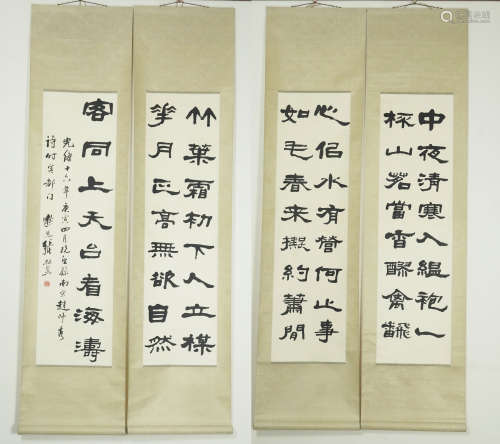 中夜清寒入緼袍一
杯山茗當香醪禽飜
心佀水有營何止事
如毛春來擬約蕭閒
竹葉霜初下人立楳
華月正高無欲自然
客同上天台看海濤
光緒十六年庚寅四月錄南宋趙師秀
詩時客都門